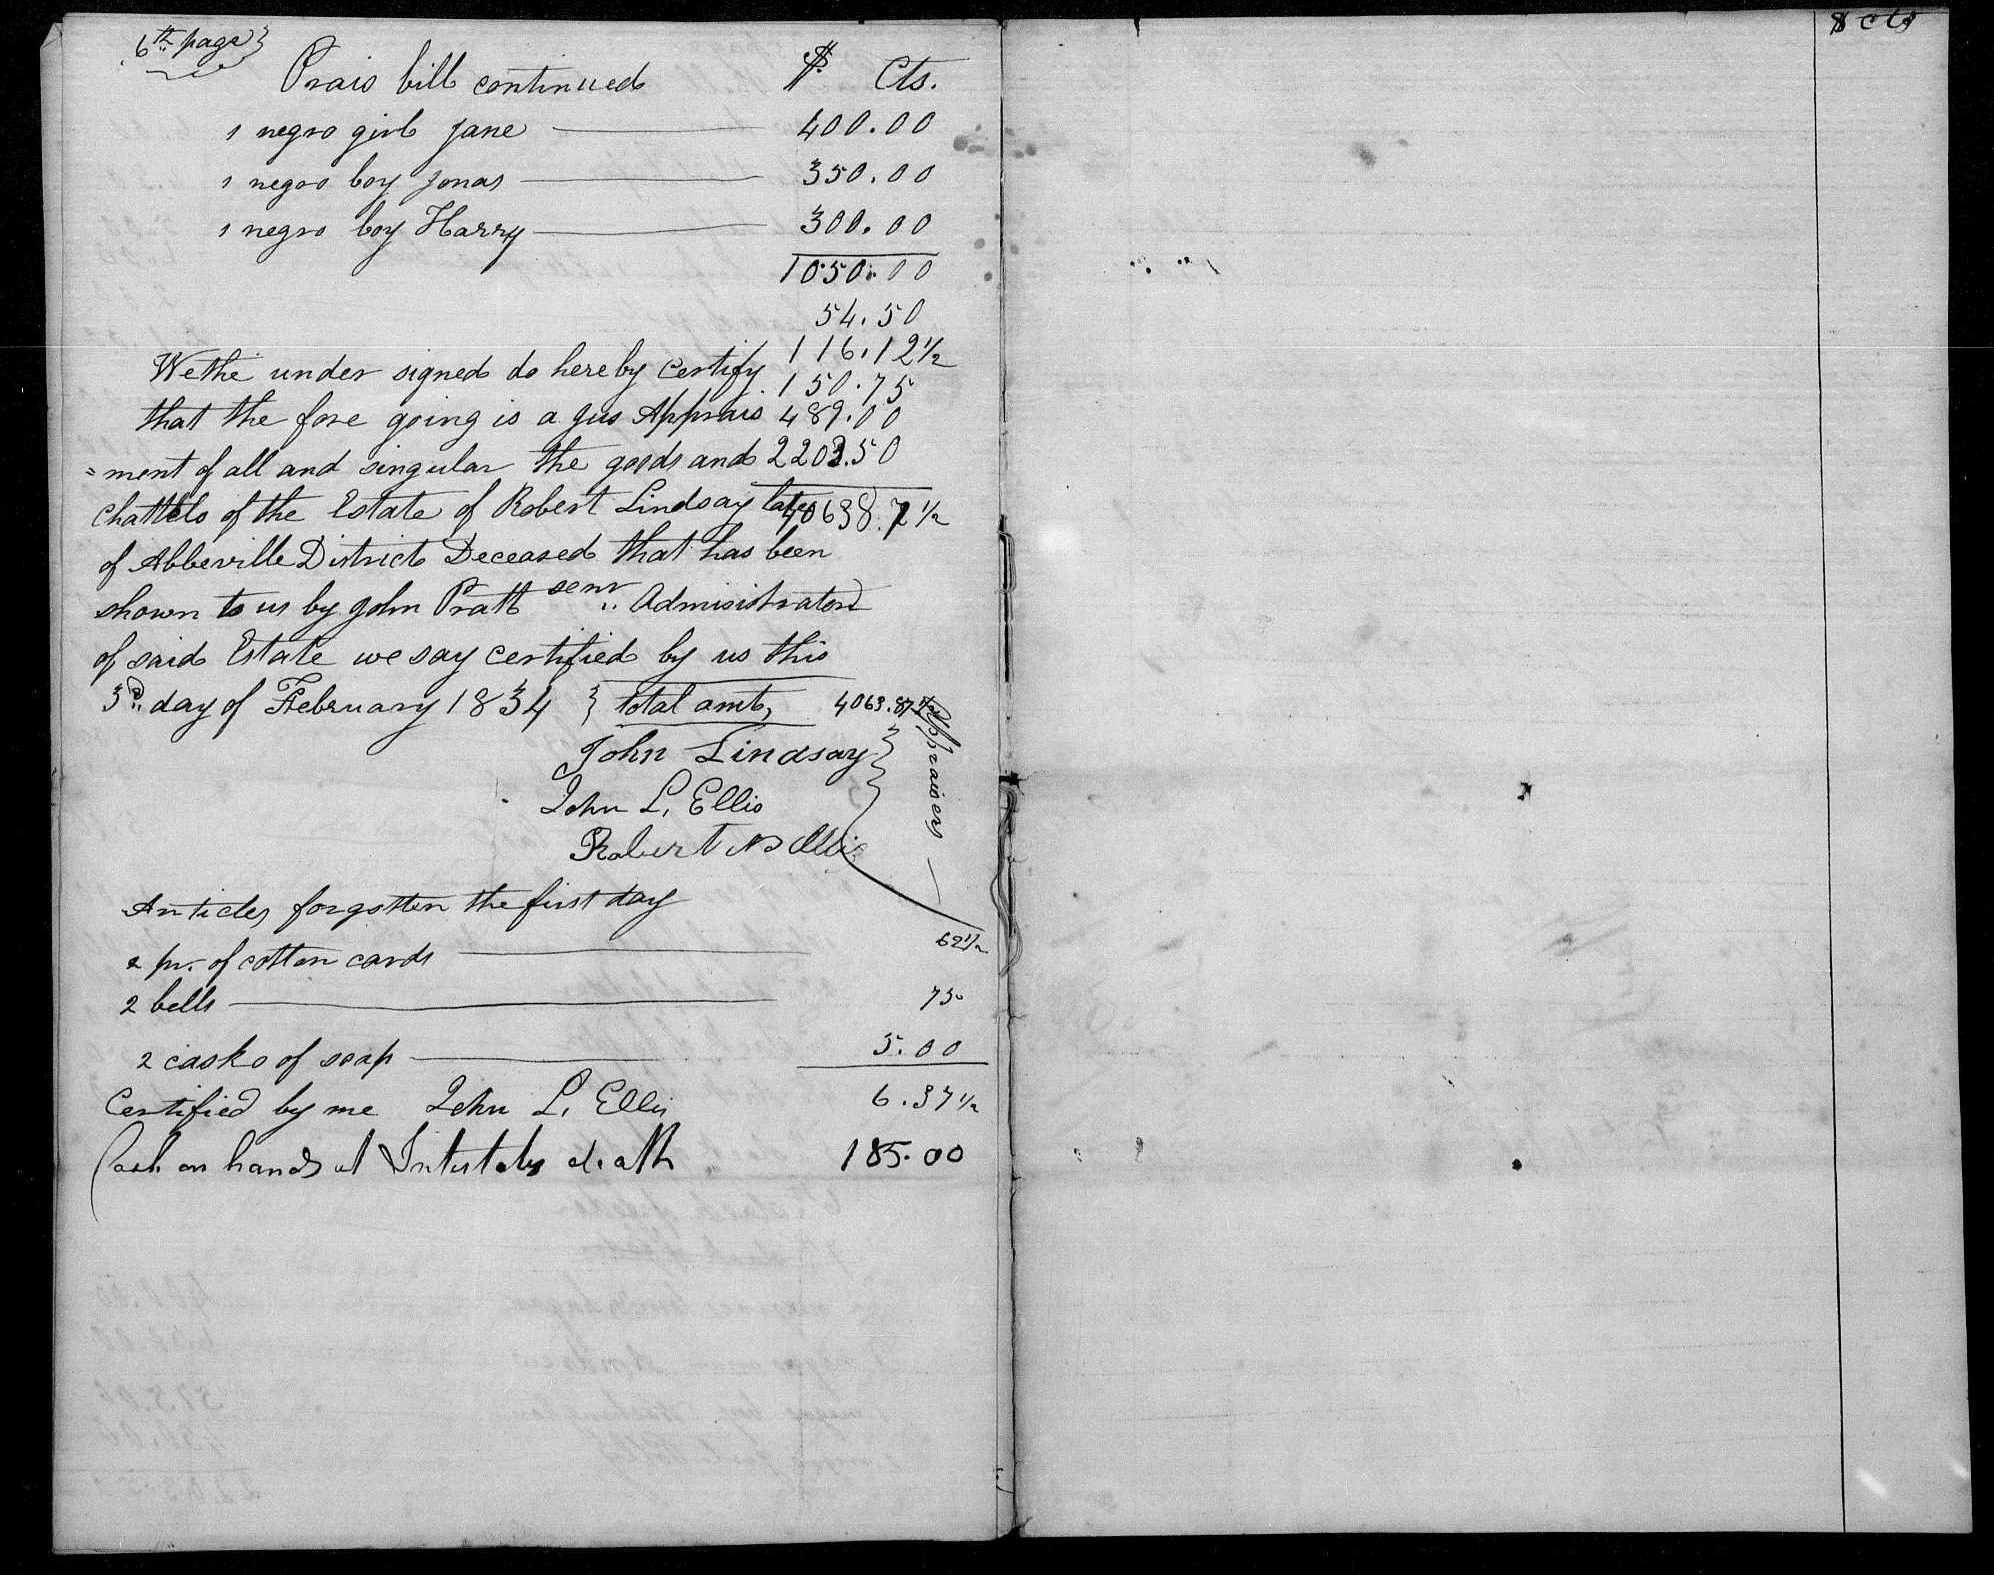 6th page }
Prais bill continued $. Cts.
1 negro girl Jane 400.00
1 negro boy Jonas 350.00
1 negro boy Harry 300.00
1050.00
54.50
116.12 1/2
We the under signed do hereby certify 150.75
that the fore going is a jus Apprais 489.00
=ment of all and singular the goods and 2203.50
Chattels of the Estate of Robert Lindsay late
of Abbeville District Deceased that has been
shown to us by John Pratt senr. Admisistrator
of said Estate we say certified by us this
3rd day of February 1834 } total amt, 4063.87 1/2
John Lindsay }
John L. Ellis
Robert Ellis
Appraisers
Articles forgotten the first day
2 pr. of cotton cards 62 1/2
2 bells 75
2 casks of soap 5.00
Certified by me John L. Ellis 6.37 1/2
Cash on hand at Intestates death 185.00
$ cts